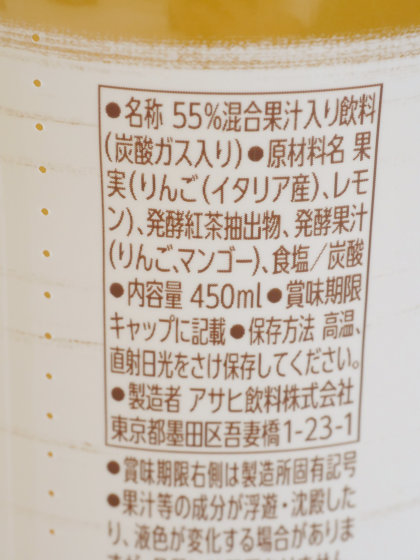 ●名称 55%混合果汁入り飲料
(炭酸ガス入り)●原材料名 果
実(りんご(イタリア産)、レモ
ン)、発酵紅茶抽出物、発酵果汁
(りんご、マンゴー)、食塩／炭酸
●内容量 450ml●賞味期限
キャップに記載●保存方法 高温、
直射日光をさけ保存してください。
●製造者 アサヒ飲料株式会社
東京都墨田区吾妻橋1-23-1
●賞味期限右側は製造所固有記号
●果汁等の成分が浮遊・沈殿した
り、液色が変化する場合がありま